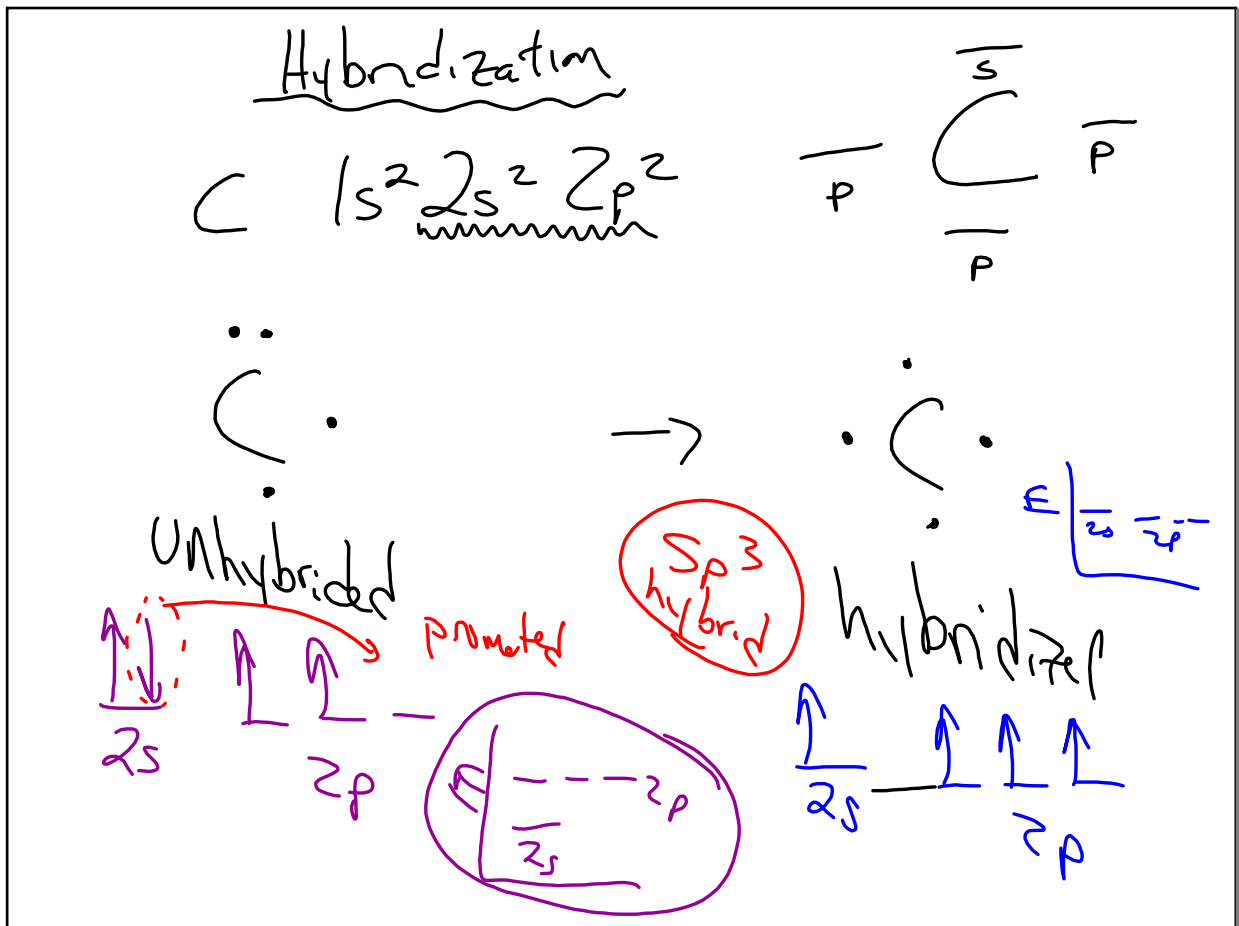 Hybridization
s
C 1s² 2s² 2p²
p C p
p
C → C
Unhybrided
sp3
hybrid
hybridized
E
2s 2p
promoted
2s 2p
E 2p
2s
2s 2p